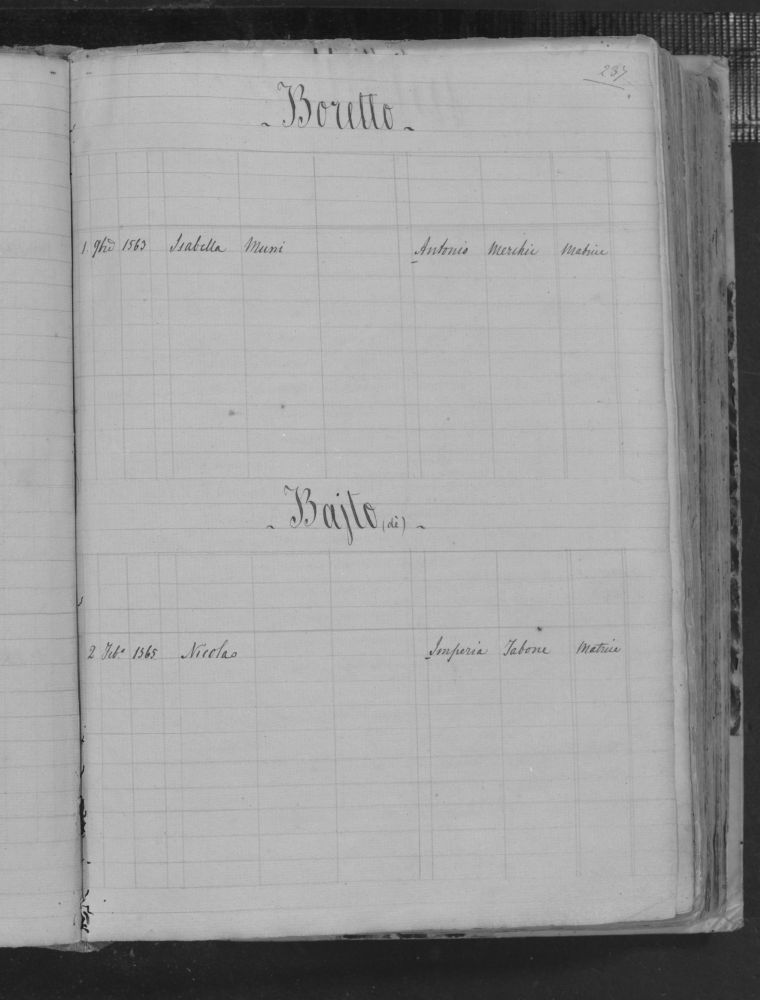 237
- Boretto -
1. 9bre 1563 Isabella Mussi Antonio Merchie Matrice
- Bajto (dè) -
2 Feb.o 1565 Nicolao Imperia Tabone Matrice